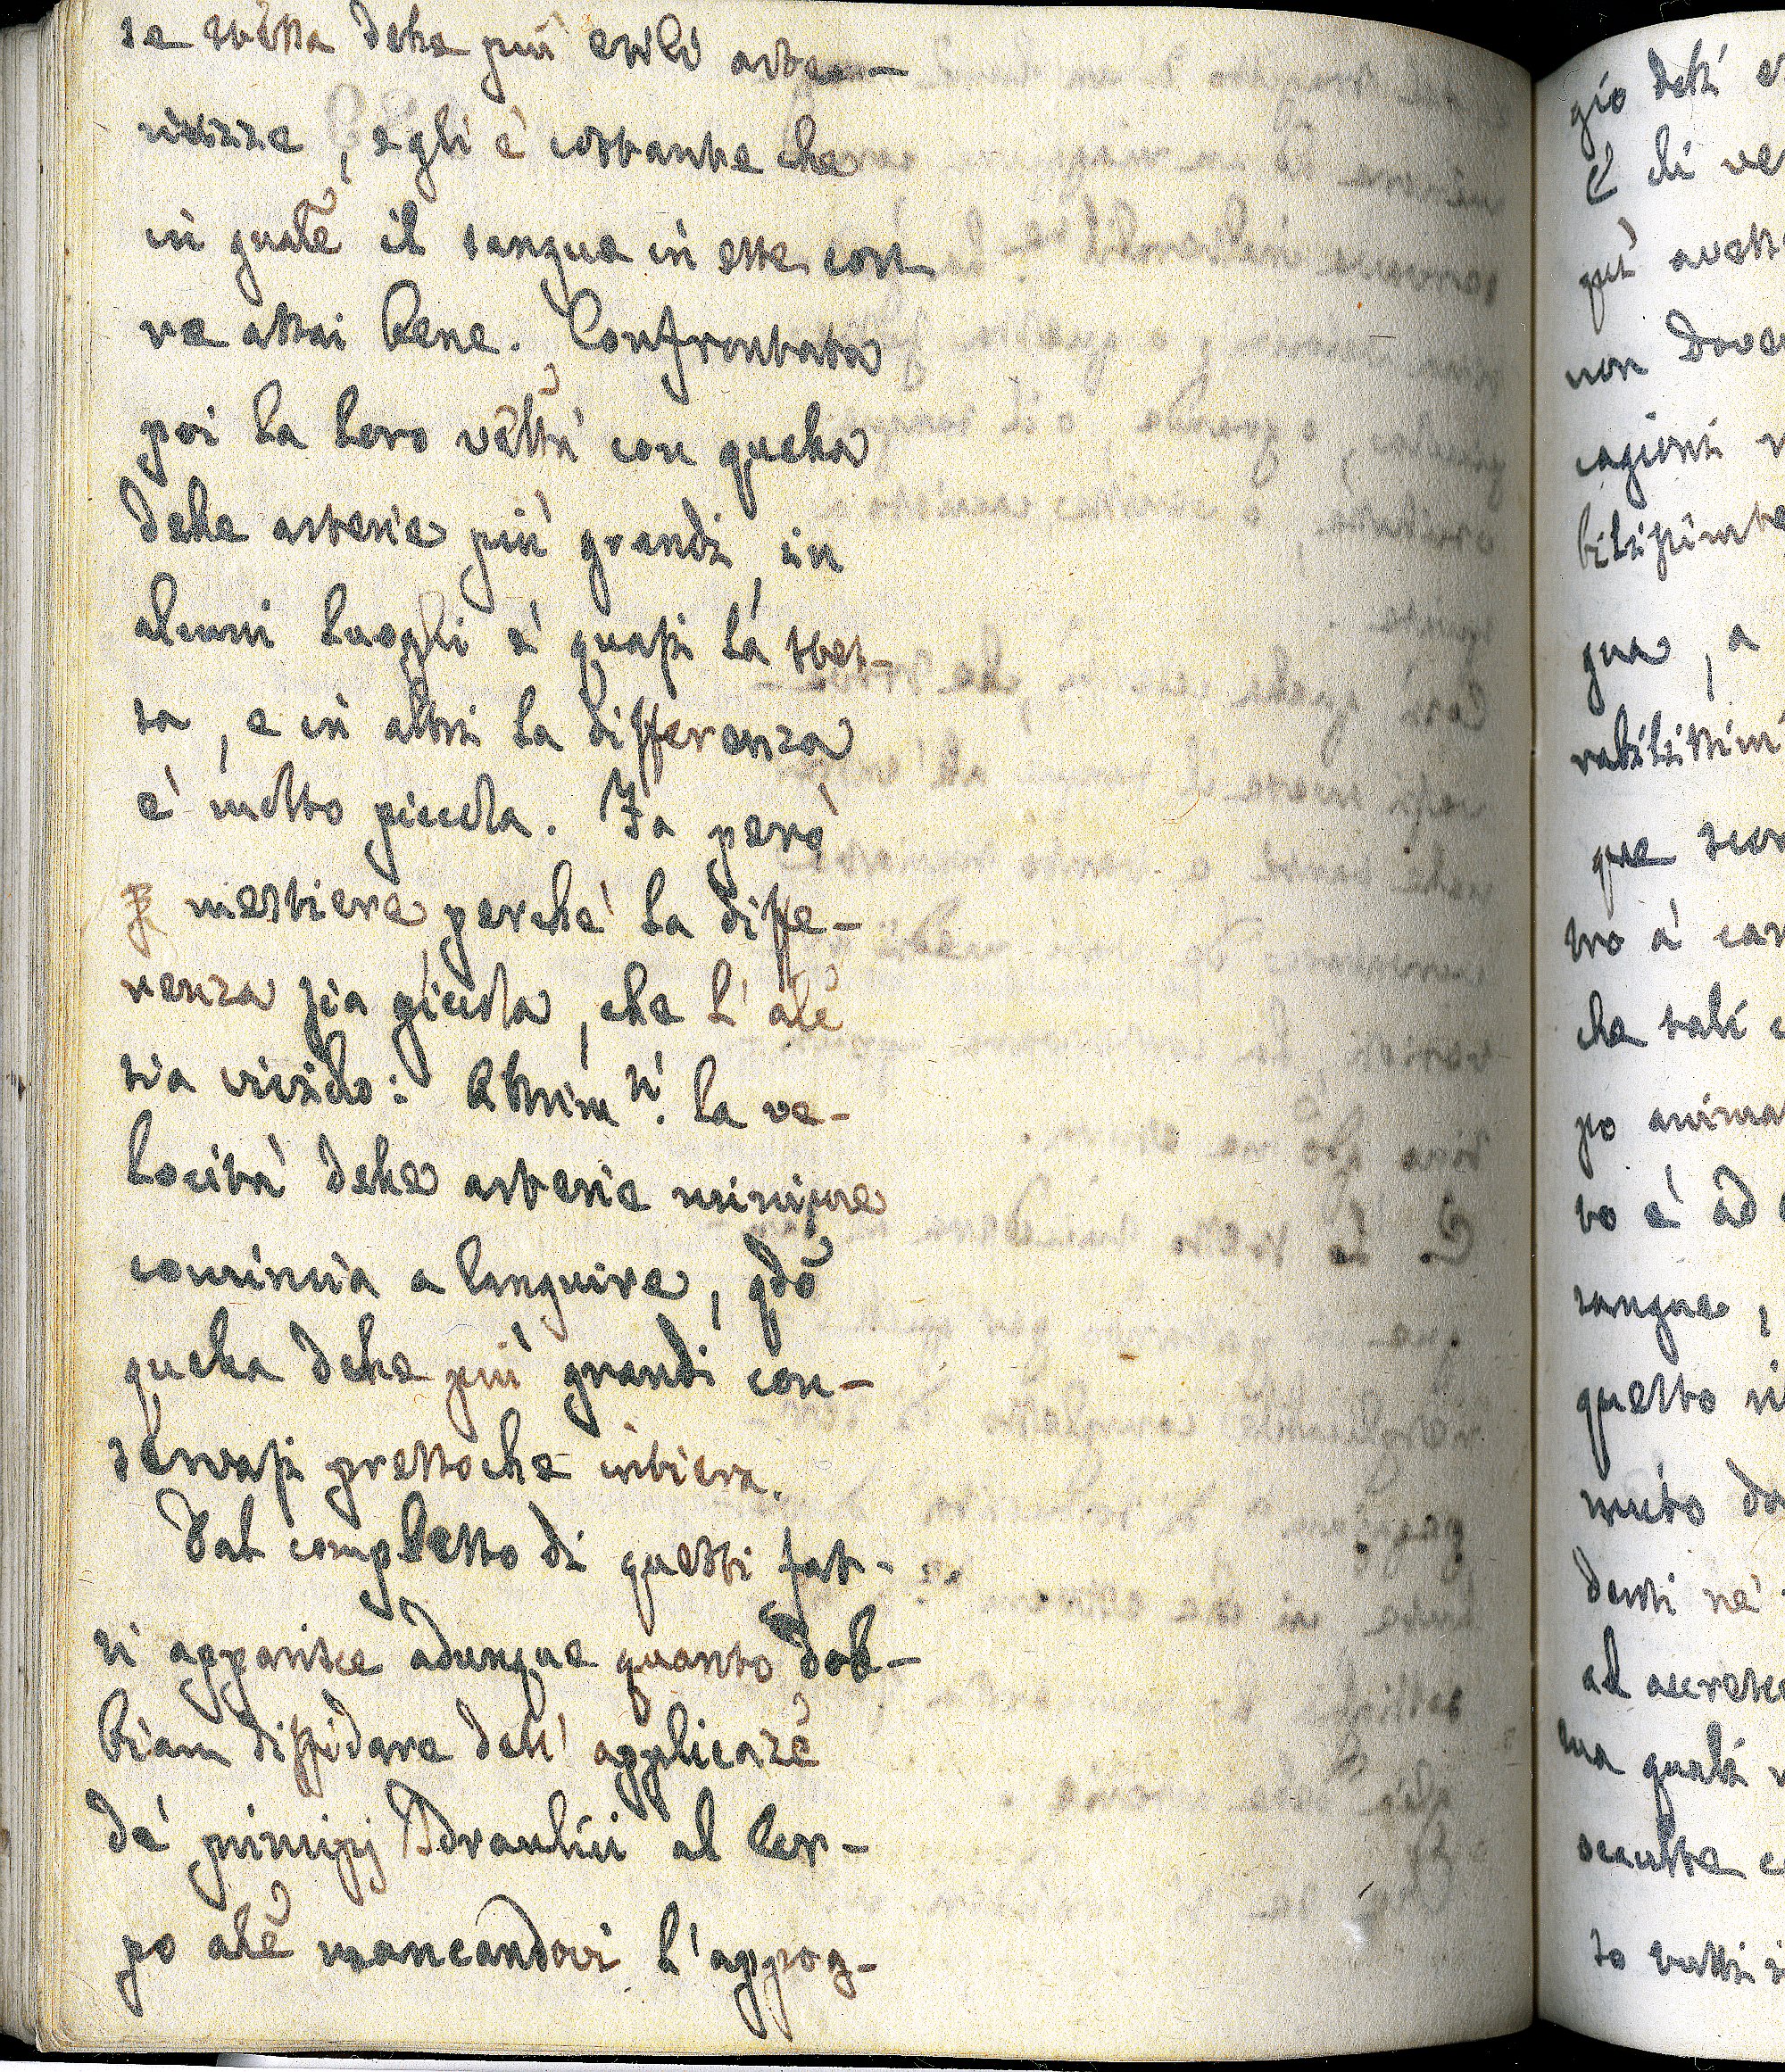 se stessa delle più esili arte-
riuzze, egli è costante che
in gnãlẽ il sangue in esse cor-
re assai bene. Confrontata
poi la loro vẽltà con quella
delle arterie più grandi, in
alcuni luoghi è quasi la stes-
sa, e in altri la differenza
è molto piccola. Fa però
mestiere, perchè la diffe-
renza sia piccola, che l'alẽ
sia vivido: Altrim.ti la ve-
locità delle arterie minime
comincia a languire, qdõ
quella delle più grandi con-
servasi pressochè intiera.
Dal complesso di questi fat-
ti apparisce adunque quanto dob-
biam diffidare dell'applicazẽ
de' principj Idraulici al Cor-
po alẽ mancandovi l'appog-
gio deli
E chi
più
non Dove
cagioni
gua, a
che tali
po anima
to è ad
sangue,
questo
denti nè
al
ma quali
occulte